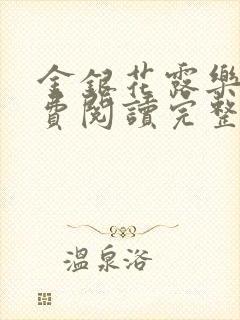 金銀花露樂
費閱讀完整
溫泉浴